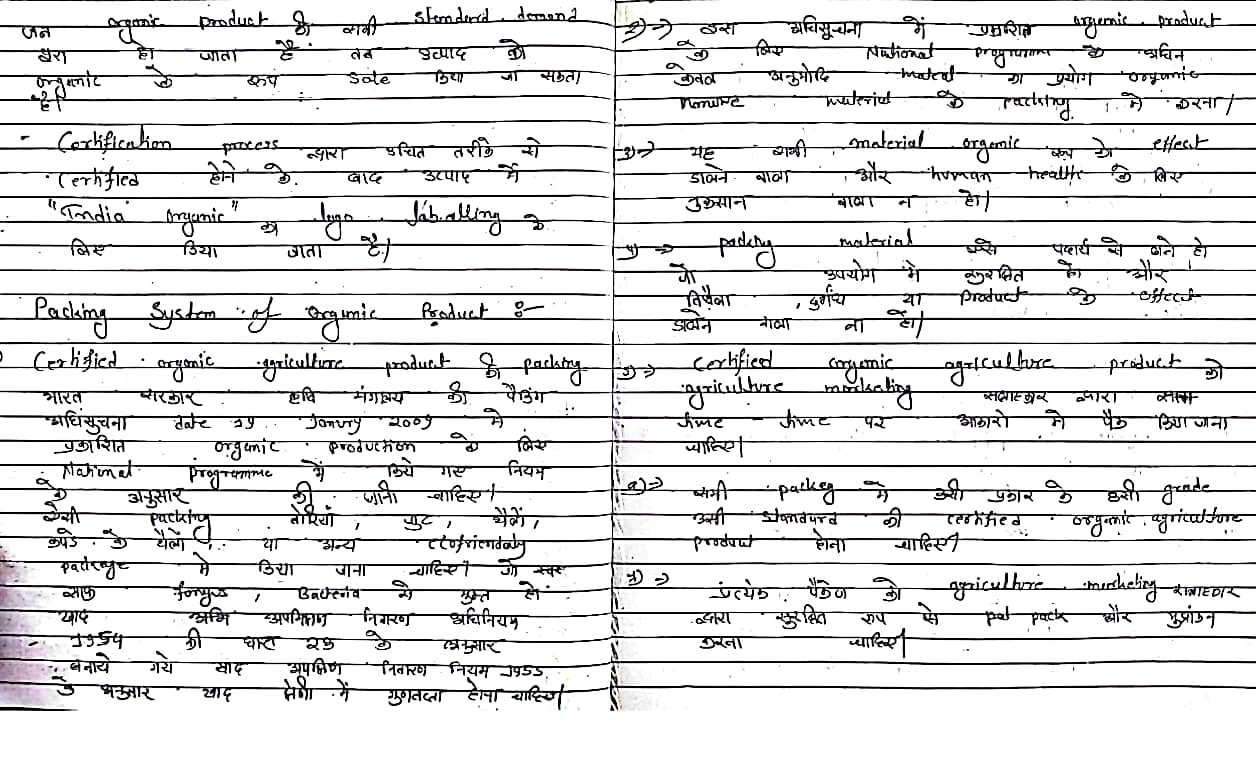 जब organic product की सभी standerd demand
द्वारा हो जाता है तब उत्पाद को
organic के रूप sale किया जा सकता
है।
- Certification process द्वारा उचित तरीके से
certified होने के बाद उत्पाद में
"India organic" का logo labelling के
लिए किया जाता है।
Packing System of organic Product :-
Certified organic agriculture product की packing
भारत सरकार कृषि मंत्रालय की पैकिंग
अधिसूचना date 29 Janvry 2009 में
प्रकाशित organic production के लिए
National programme में किये गए नियम
के अनुसार की जानी चाहिए।
packing बोरियां, जुट, थैलों,
कपडे के थैलों, या अन्य
package में किया जाना चाहिए। जो
fungus, Bacteria से मुक्त हो
खाद्य अपमिश्रण निवारण अधिनियम
- 1954 की धारा 23 के अनुसार
बनाये गये खाद्य अपमिश्रण निवारण नियम 1955
के अनुसार खाद्य श्रेणी में गुणवत्ता होना चाहिए।
2) => अधिसूचना में प्रकाशित organic product
के लिए National programme के अधिन
केवल अनुमोदि का प्रयोग organic
material के packing में करना।
3) => यह सभी material organic रूप के effect
डालने वाला और human health के लिए
नुकसान वाला न हो।
4) => packing material ऐसे पदार्थ से बने हो
जो उपयोग में सुरक्षित हो और
विषैला, दुर्गंध या product के effect
डालने वाला ना हो।
5) => Certified organic agriculture product को
agriculture marketing सलाहकार द्वारा
time - time पर आकारो में पैक किया जाना
चाहिए।
6) => सभी packeg में उसी प्रकार के उसी grade
उसी standard की certified organic agriculture
product होना चाहिए।
7) => प्रत्येक पैकेज को agriculture marketing सलाहकार
द्वारा सुरक्षित रूप से pack और मुद्रांकन
करना चाहिए।